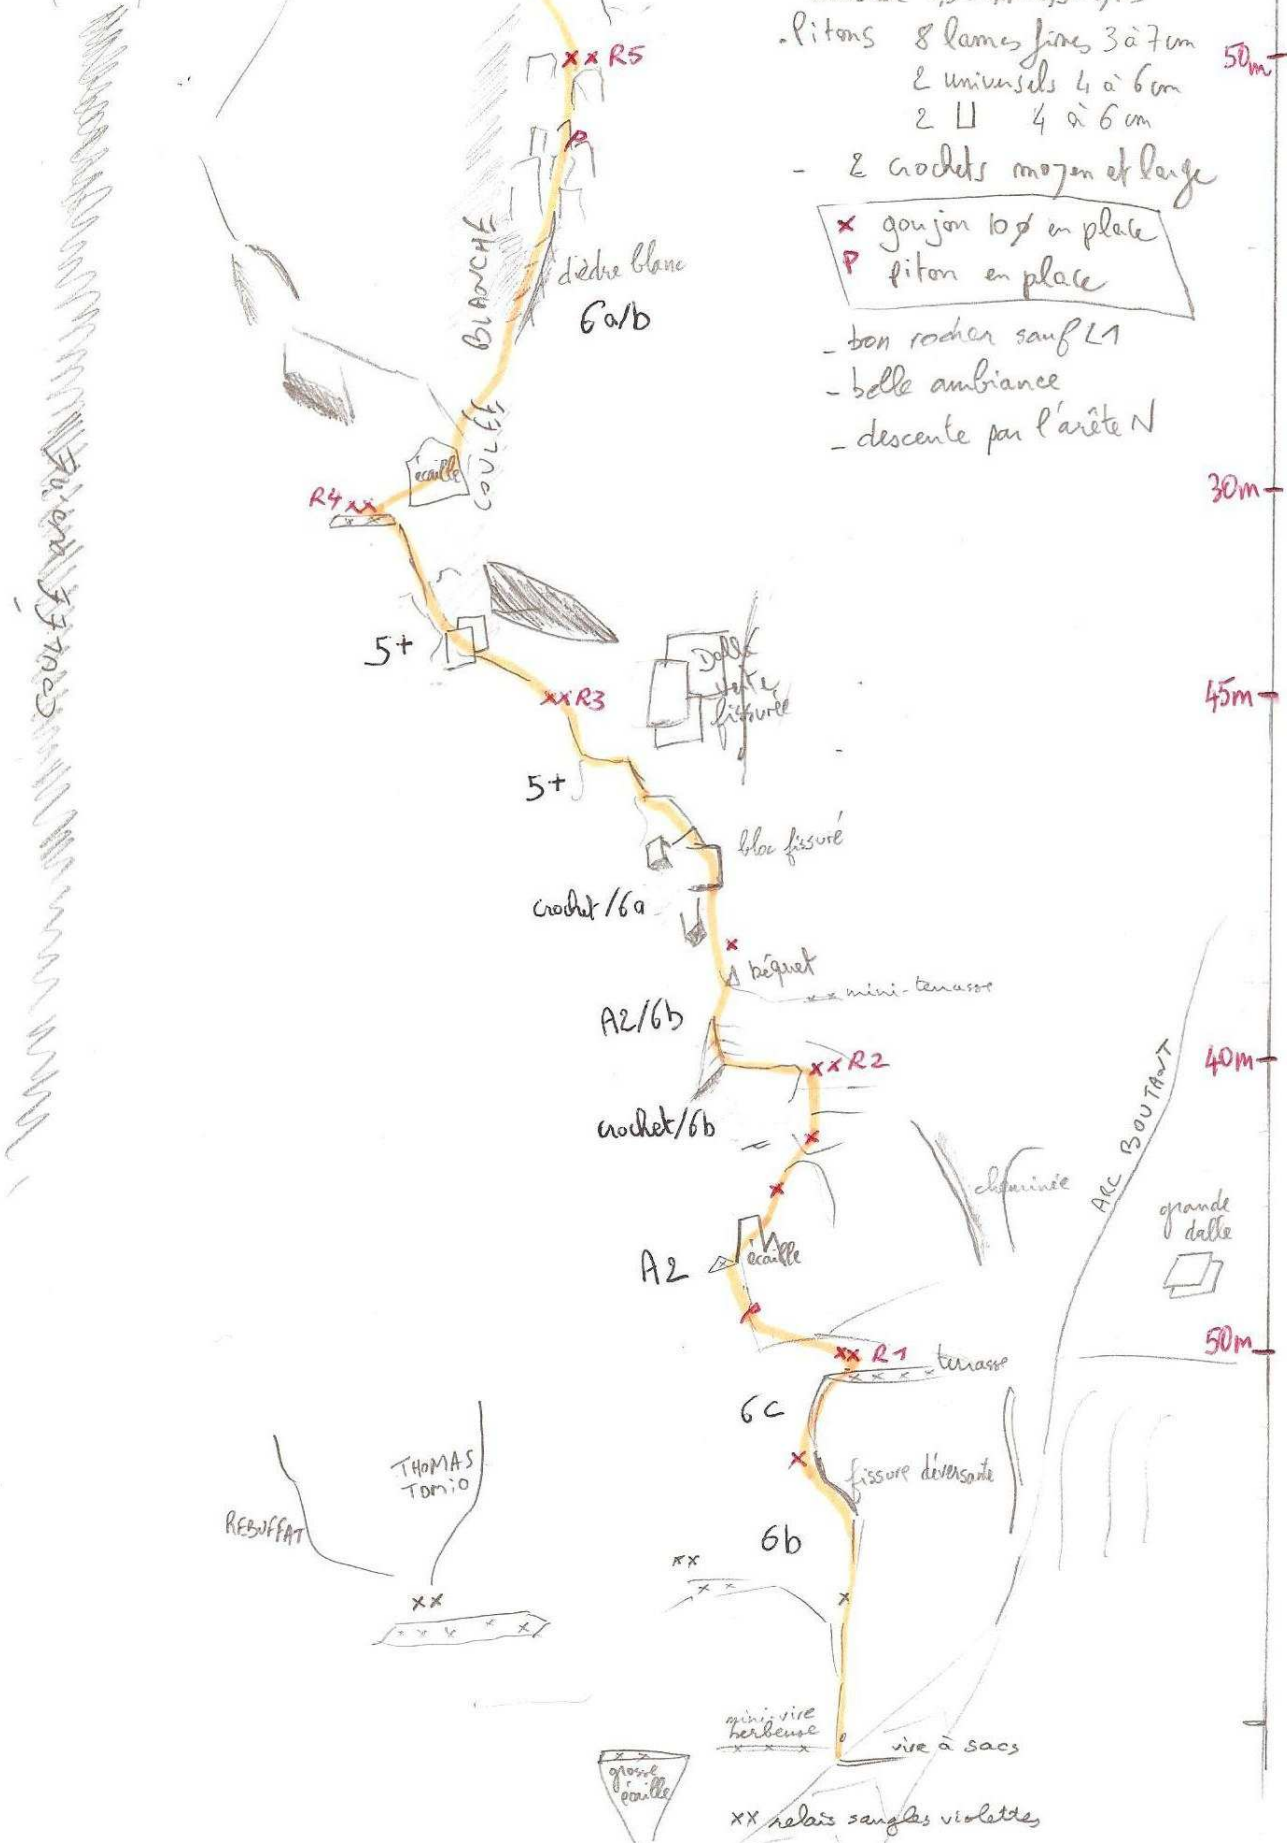 . Pitons 8 lames fines 3 à 7 cm
2 universels 4 à 6 cm
2 U 4 à 6 cm
- 2 crochets moyen et large
x goujon 10 ø en place
P piton en place
- bon rocher sauf L1
- belle ambiance
- descente par l'arête N
50m
xx R5
P
dièdre blanc
6a/b
COULÉE BLANCHE
écaille
R4 xx
30m
5+
xx R3
Dalle
fissurée
45m
5+
bloc fissuré
crochet/6a
x
béquet
xx mini-terrasse
A2/6b
xx R2
40m
crochet/6b
x
cheminée
ARC BOUTANT
x
grande
dalle
écaille
A2
P
xx R1
50m
terrasse
6c
x
fissure déversante
THOMAS
TOMIO
REBUFFAT
6b
xx
xx
x
mini-vire
herbeuse
vire à sacs
grosse
écaille
xx relais sangles violettes